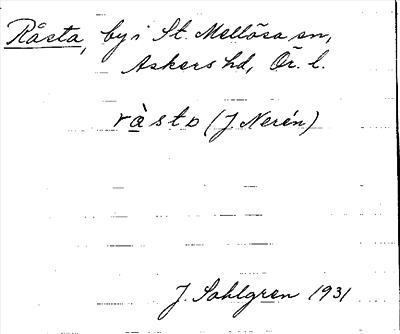 Råsta, by i St. Mellösa sn,
Askers hd, Ör. l.
ràstɒ (J Nerén)
J. Sahlgren 1931